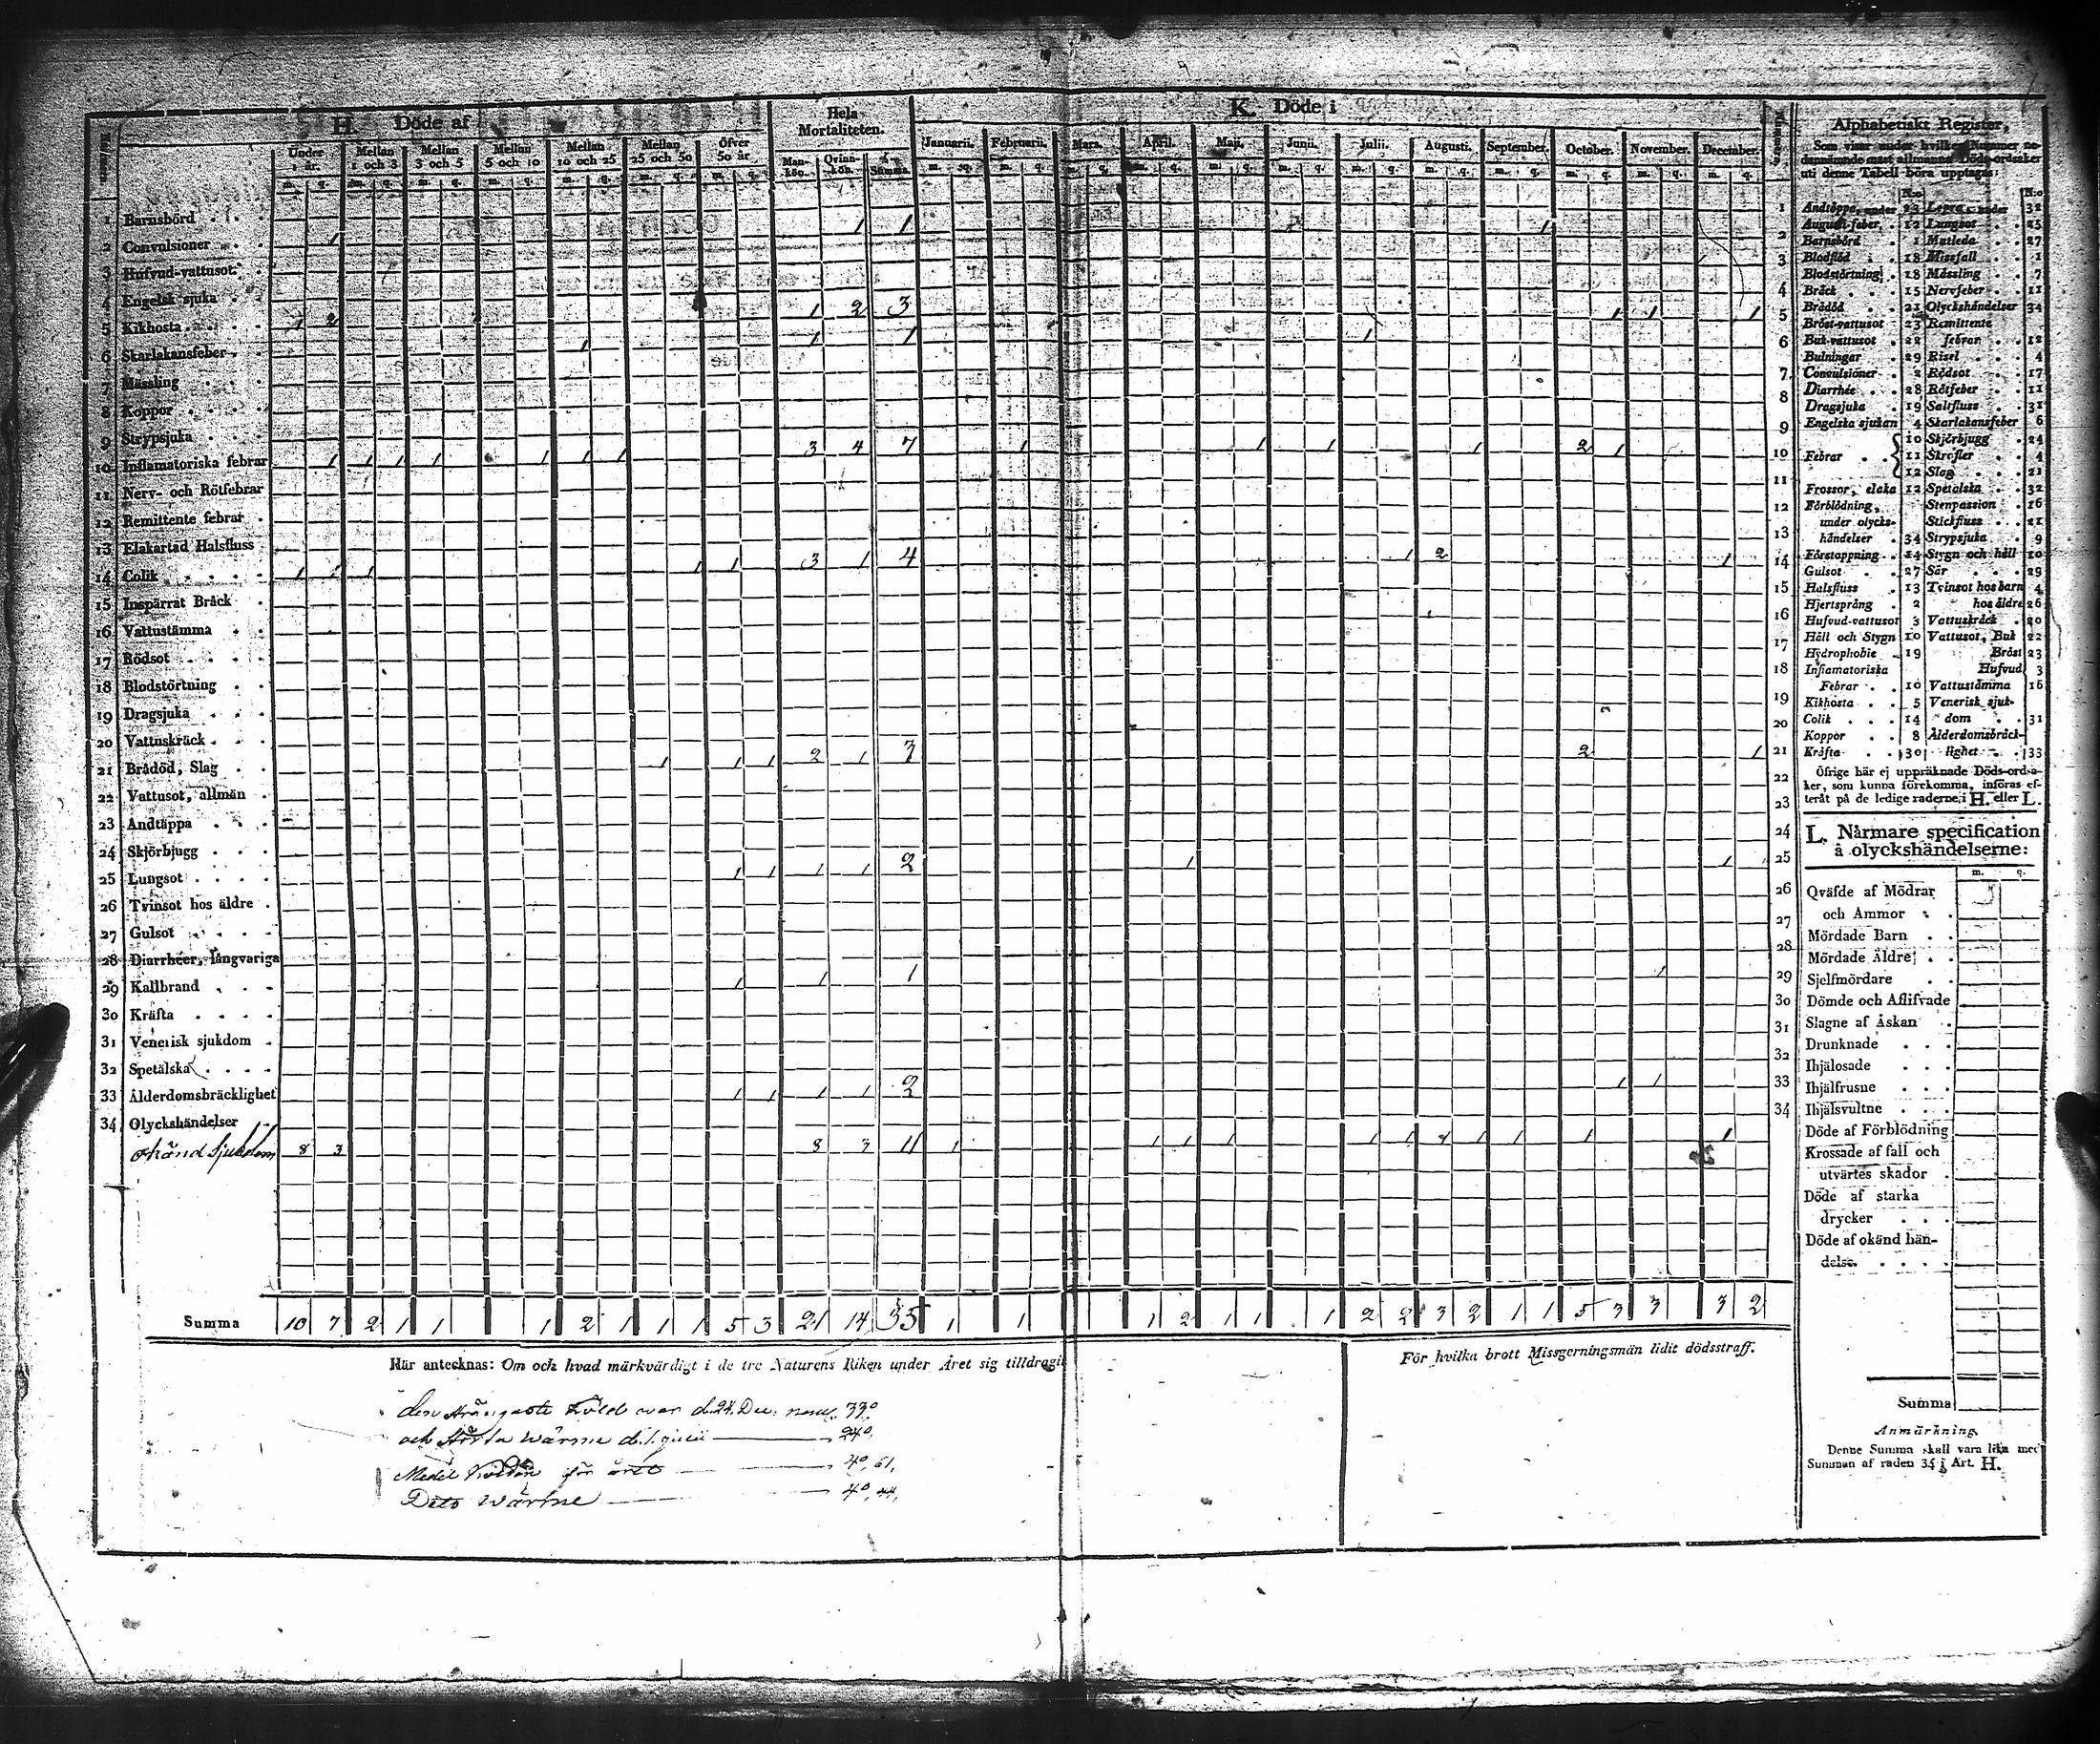 H. Döde af
Hela Mortaliteten.
K. Döde i
Nummer.
Under 1 år. Mellan 1 och 3 Mellan 3 och 5 Mellan 5 och 10 Mellan 10 och 25 Mellan 25 och 50 Öfver 50 år
Man-kön. Qvinn-kön. Summa.
Januarii. Februarii. Mars. April. Maji. Junii. Julii. Augusti. September. October. November. December.
m. q. m. q. m. q. m. q. m. q. m. q. m. q. m. q. m. q. m. q. m. q. m. q. m. q. m. q. m. q. m. q. m. q. m. q. m. q.
1 Barnsbörd 1
2 Convulsioner 1 1 1 1 2
3 Hufvud-vattusot 3
4 Engelsk sjuka 4
5 Kikhosta 1 2 1 2 3 1 1 1 5
6 Skarlakansfeber 1 1 1 1 6
7 Mässling 7
8 Koppor 8
9 Strypsjuka 9
10 Inflamatoriska febrar 1 1 1 1 1 1 1 3 4 7 1 1 1 1 2 1 10
11 Nerv- och Rötfebrar 11
12 Remittente febrar 12
13 Elakartad Halsfluss 13
14 Colik 1 1 1 1 3 1 4 1 2 1 14
15 Inspärrat Bråck 15
16 Vattustämma 16
17 Rödsot 17
18 Blodstörtning 18
19 Dragsjuka 19
20 Vattuskräck 20
21 Brådöd, Slag 1 1 1 2 1 3 2 1 21
22 Vattusot, allmän 22
23 Andtäppa 23
24 Skjörbjugg 24
25 Lungsot 1 1 1 1 2 1 1 25
26 Tvinsot hos äldre 26
27 Gulsot 27
28 Diarrhéer, långvariga 28
29 Kallbrand 1 1 1 1 29
30 Kräfta 30
31 Venerisk sjukdom 31
32 Spetälska 32
33 Ålderdomsbräcklighet 1 1 1 1 2 1 1 33
34 Olyckshändelser 34
okänd Sjukdom 8 3 8 3 11 1 1 1 1 1 1 1 1 1 1
Summa 10 7 2 1 1 1 2 1 1 1 5 3 21 14 35 1 1 1 2 1 1 1 2 2 3 2 1 1 5 3 3 3 2
Här antecknas: Om och hvad märkvärdigt i de tre Naturens Riken under Året sig tilldragit
den strängaste Köld war d. 24. Dec.
och största Wärme d. 1. 24°.
Medel Kölden för året 4°, 61,
Dito Wärme 4°, 44,
För hvilka brott Missgerningsmän lidit dödsstraff.
Alphabetiskt Register,
Som visar under hvilket Nummer ne-
dannämnde mäst allmänna Döds-ordsaker
uti denne Tabell böra upptagas:
N:o N:o
Andtäppa, under 23 Lepra under 32
Augusti-feber, 12 Lungsot 25
Barnsbörd 1 Matleda 27
Blodflöd 18 Missfall 1
Blodstörtning 18 Mässling 7
Bråck 15 Nervfeber 11
Brådöd 21 Olyckshändelser 34
Bröst-vattusot 23 Remittente
Buk-vattusot 22 febrar 12
Bulningar 29 Risel 4
Convulsioner 2 Rödsot 17
Diarrhée 28 Rötfeber 11
Dragsjuka 19 Saltfluss 31
Engelska sjukan 4 Skarlakansfeber 6
10 Skjörbjugg 24
Febrar 11 Skrofler 4
12 Slag 21
Frossor, elaka 12 Spetälska 32
Förblödning, Stenpassion 16
under olycks- Stickfluss 21
händelser 34 Strypsjuka 9
Förstoppning 14 Stygn och håll 10
Gulsot 27 Sår 29
Halsfluss 13 Tvinsot hos barn 4
Hjertsprång 2 hos äldre 26
Hufvud-vattusot 3 Vattuskräck 20
Håll och Stygn 10 Vattusot, Buk 22
Hydrophobie 19 Bröst 23
Inflamatoriska Hufvud 3
Febrar 10 Vattustämma 16
Kikhosta 5 Venerisk sjuk-
Colik 14 dom 31
Koppor 8 Ålderdomsbräck-
Kräfta 30 lighet 33
Öfrige här ej uppräknade Döds-ordsa-
ker, som kunna förekomma, införas ef-
teråt på de ledige raderne i H. eller L.
L. Närmare specification
å olyckshändelserne:
m. q.
Qväfde af Mödrar
och Ammor
Mördade Barn
Mördade Äldre
Sjelfmördare
Dömde och Aflifvade
Slagne af Åskan
Drunknade
Ihjälosade
Ihjälfrusne
Ihjälsvultne
Döde af Förblödning
Krossade af fall och
utvärtes skador
Döde af starka
drycker
Döde af okänd hän-
delse.
Summa
Anmärkning.
Denne Summa skall vara lika med
Summan af raden 34 i Art. H.